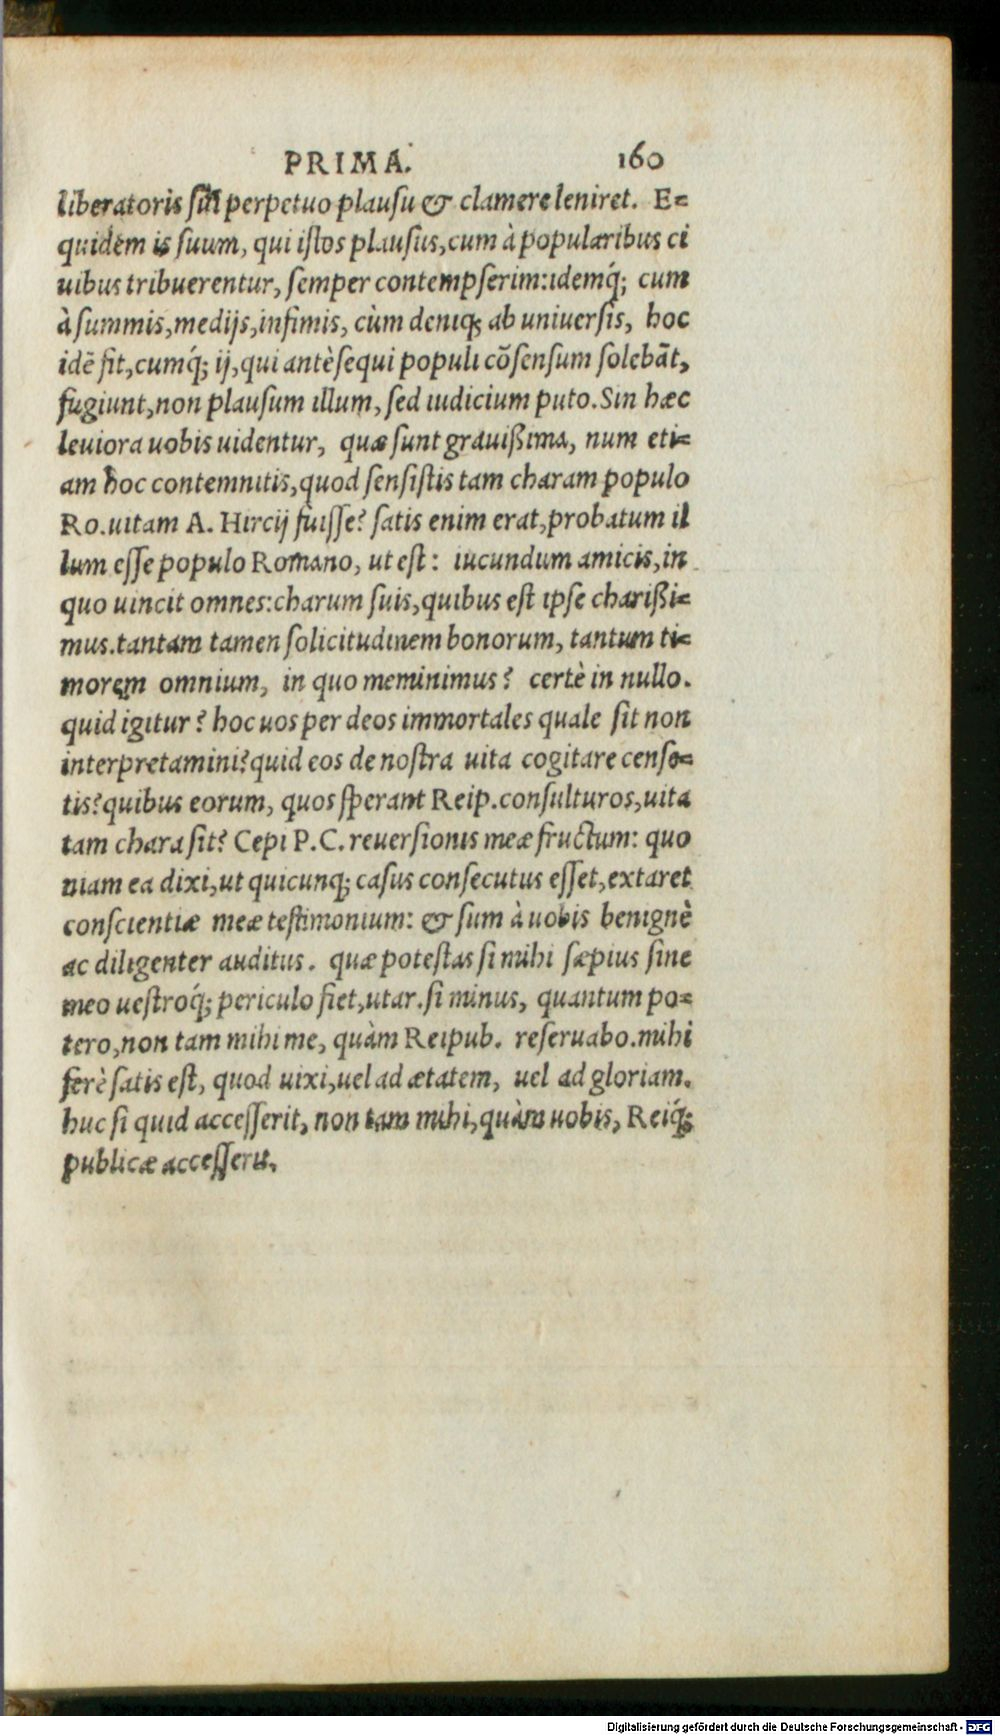 PRIMA. 160
liberatoris sui perpetuo plausu & clamere leniret. E=
quidem is suum, qui istos plausus, cum à popularibus ci
uibus tribuerentur, semper contempserim: idemq́; cum
à summis, medijs, infimis, cùm deniq; ab uniuersis, hoc
idẽ fit, cumq́; ij, qui antè sequi populi cõsensum solebãt,
fugiunt, non plausum illum, sed iudicium puto. Sin hæc
leuiora uobis uidentur, quæ sunt grauißima, num eti=
am hoc contemnitis, quod sensistis tam charam populo
Ro. uitam A. Hircij fuisse? satis enim erat, probatum il
lum esse populo Romano, ut est: iucundum amicis, in
quo uincit omnes: charum suis, quibus est ipse charißi=
mus. tantam tamen solicitudinem bonorum, tantum ti=
morem omnium, in quo meminimus? certè in nullo.
quid igitur? hoc uos per deos immortales quale sit non
interpretamini? quid eos de nostra uita cogitare cense=
tis? quibus eorum, quos sperant Reip. consulturos, uita
tam chara sit? Cepi P. C. reuersionis meæ fructum: quo
niam ea dixi, ut quicunq; casus consecutus esset, extaret
conscientiæ meæ testimonium: & sum à uobis benignè
ac diligenter auditus. quæ potestas si mihi sæpius sine
meo uestroq́; periculo fiet, utar. si minus, quantum po=
tero, non tam mihi me, quàm Reipub. reseruabo. mihi
ferè satis est, quod uixi, uel ad ætatem, uel ad gloriam.
huc si quid accesserit, non tam mihi, quàm uobis, Reiq́;
publicæ accesserit.
Digitalisierung gefördert durch die Deutsche Forschungsgemeinschaft - DFG